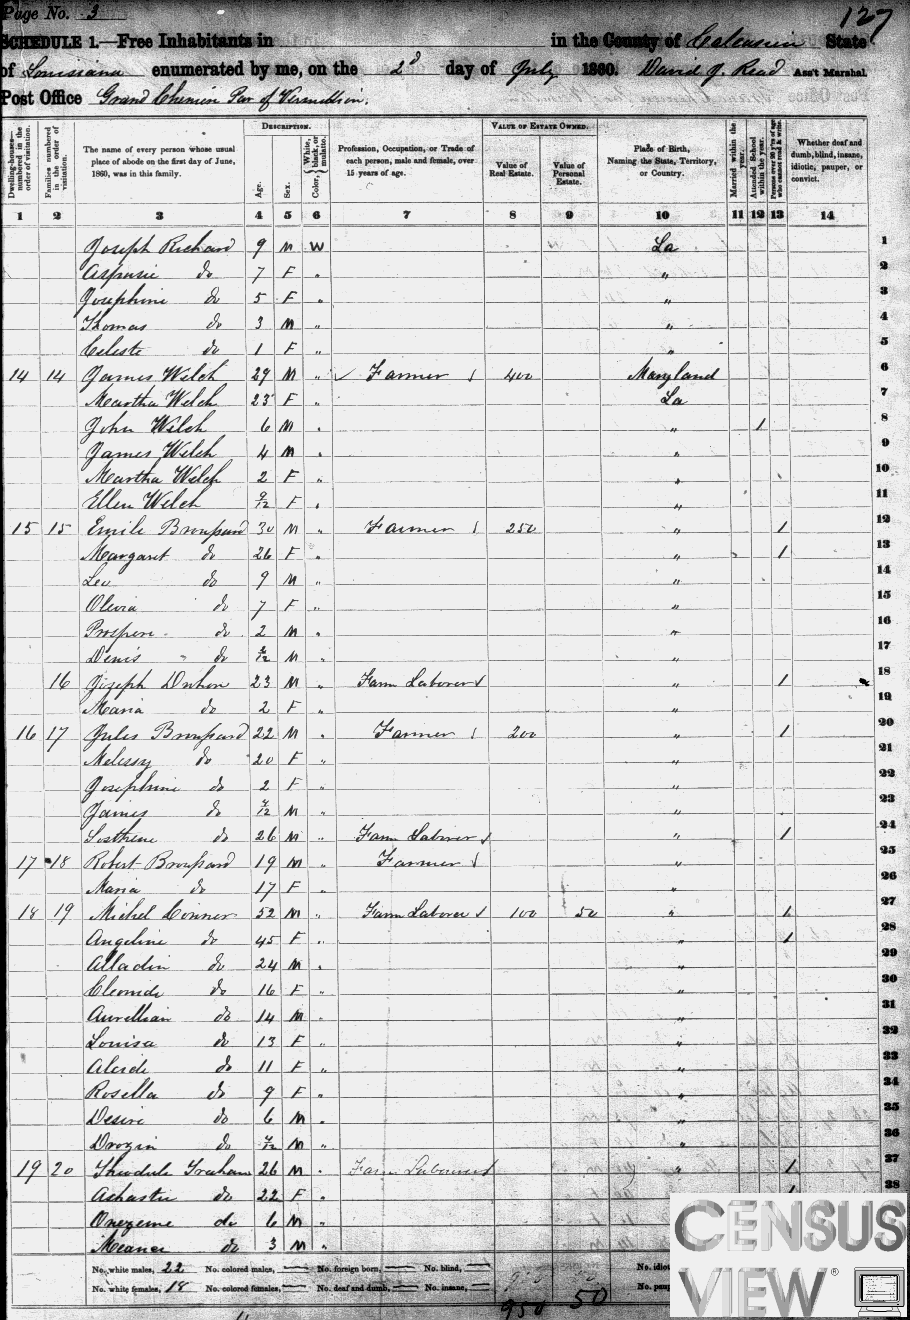 Page No. 3
127
SCHEDULE 1.—Free Inhabitants in in the County of Calcasieu State
of Louisiana enumerated by me, on the 2d day of July 1860. David J. Read Ass't Marshal.
Post Office Grand Chenier Par of Vermillion.
Dwelling-houses—numbered in the order of visitation.
Families numbered in the order of visitation.
The name of every person whose usual place of abode on the first day of June, 1860, was in this family.
DESCRIPTION.
Age.
Sex.
Color, White, black, or mulatto.
Profession, Occupation, or Trade of each person, male and female, over 15 years of age.
VALUE OF ESTATE OWNED.
Value of Real Estate.
Value of Personal Estate.
Place of Birth, Naming the State, Territory, or Country.
Married within the year.
Attended School within the year.
Persons over 20 y'rs of age who cannot read & write.
Whether deaf and dumb, blind, insane, idiotic, pauper, or convict.
1 2 3 4 5 6 7 8 9 10 11 12 13 14
Joseph Richard 9 M W La 1
Aspasie do 7 F " " 2
Josephine do 5 F " " 3
Thomas do 3 M " " 4
Celeste do 1 F " " 5
14 14 James Welch 29 M " ✓ Farmer 400 Maryland 6
Martha Welch 23 F " La 7
John Welch 6 M " " 1 8
James Welch 4 M " " 9
Martha Welch 2 F " " 10
Ellen Welch 9/12 F " " 11
15 15 Emile Broussard 30 M " Farmer 250 " 1 12
Margaret do 26 F " " 1 13
Leo do 9 M " " 14
Olivia do 7 F " " 15
Prospere do 2 M " " 16
Denis do M " " 17
16 Joseph Duhon 23 M " Farm Laborer " 1 18
Maria do 2 F " " 19
16 17 Jules Broussard 22 M " Farmer 200 " 1 20
Melissy do 20 F " " 21
Josephine do 2 F " " 22
James do M " " 23
Sosthene do 26 M " Farm Laborer " 1 24
17 18 Robert Broussard 19 M " Farmer " 25
Maria do 17 F " " 26
18 19 Michel Conner 52 M " Farm Laborer 100 50 " 1 27
Angeline do 45 F " " 1 28
Alladin do 24 M " " 29
Cleonide do 16 F " " 30
Aurellian do 14 M " " 31
Louisa do 13 F " " 32
Alcide do 11 F " " 33
Rosella do 9 F " " 34
Desire do 6 M " " 35
Drozin do M " " 36
19 20 Theodule Traham 26 M " Farm Labourer " 1 37
do 22 F " 1 38
Onezeme do 6 M "
do 3 M "
No. white males, 22 No. colored males, No. foreign born, No. blind, No. idiot
No. white females, 18 No. colored females, No. deaf and dumb, No. insane, No. paup
950 50
CENSUS
VIEW®